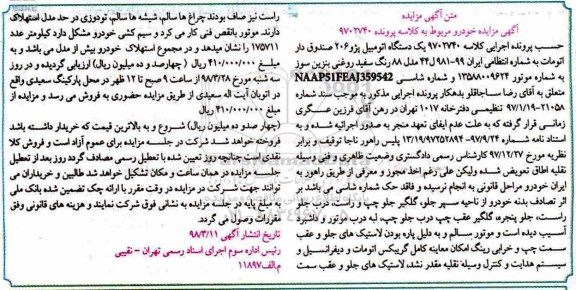 متن آگهی مزایده
آگهی مزایده خودرو مربوط به کلاسه پرونده ۹۷۰۲۷۴۰
حسب پرونده اجرایی کلاسه ۹۷۰۲۷۴۰ یک دستگاه اتومبیل پژو ۲۰۶ صندوق دار
اتومات به شماره انتظامی ایران ۹۹-۹۸۱ ل ۴۴ مدل ۸۸ رنگ سفید روغنی بنزین سوز
به شماره موتور ۱۳۵۸۸۰۰۹۶۲۴ و شماره شاسی NAAP51FEAJ359542
متعلق به آقای رضا ساجاقلو بدهکار پرونده اجرایی مذکور به موجب سند شماره
۲۱۰۵۸-۹۷/۱/۱۹ تنظیمی دفترخانه ۱۰۱۷ تهران در رهن آقای فرزین عسگری
زمانی قرار گرفته که به علت عدم ایفای تعهد منجر به صدور اجرائیه شده و به
استناد نامه شماره ۹۷/۹/۲۴-۱۳/۱۹/۹۷۲۵۲۸۹۴ پلیس راهور ناجا توقیف و برابر
نظریه مورخ ۹۷/۱۲/۲۷ کارشناس رسمی دادگستری وضعیت ظاهری و فنی وسیله
نقلیه اطاق تعویض شده ولیکن علی رغم اخذ مجوز و معرفی از طریق راهور به
ایران خودرو مراحل قانونی به انجام نرسیده و فاقد حک شماره شاسی می باشد بر
اثر تصادف بدنه خودرو از ناحیه سپر جلو، گلگیر جلو چپ و راست، درب جلو
راست، جلو پنجره، گلگیر عقب چپ درب جلو چپ، لبه درب موتور و داشبرد
آسیب دیده است و موتور سالم و به دلیل پاره بودن لاستیک های جلو و عقب
سمت چپ و خرابی رینگ امکان معاینه کامل گریبکس اتومات و دیفرانسیل و
سیستم هدایت و کنترل وسیله نقلیه مقدر نشد، لاستیک های جلو و عقب سمت
راست نیز صاف بودند چراغ ها سالم، شیشه ها سالم، تودوزی در حد مدل استهلاک
دارند. موتور بانقص فنی کار می کرد و سیم کشی خودرو مشکل دارد کیلومتر عدد
۱۷۵۷۱۱ را نشان میدهد و در مجموع استهلاک خودرو بیش از مدل می باشد و به
مبلغ ۴۱۰/۰۰۰/۰۰۰ ریال (چهارصد و ده میلیون ریال) ارزیابی گردیده و در روز
سه شنبه مورخ ۹۸/۳/۲۸ از ساعت ۹ صبح تا ۱۲ ظهر در محل پارکینگ سعیدی واقع
در اتوبان آیت اله سعیدی از طریق مزایده حضوری به فروش می رسد و مزایده از
مبلغ ۴۱۰/۰۰۰/۰۰۰ ریال
(چهار صد و ده میلیون ریال) شروع و به بالاترین قیمت که خریدار داشته باشد
فروخته خواهد شد شرکت در جلسه مزایده برای عموم آزاد است و فروش کلا
نقدی است چنانچه روز تعیین شده با تعطیل رسمی مصادف گردد روز بعد از تعطیل
جلسه مزایده در همان ساعت و مکان تشکیل خواهد شد طالبین و خریداران می
توانند جهت شرکت در مزایده در وقت مقرر با ارائه چک تضمین شده بانک ملی
به مبلغ پایه در جلسه مزایده به نشانی فوق شرکت نمایند و هزینه های قانونی وفق
مقررات وصول می گردد.
تاریخ انتشار آگهی ۹۸/۳/۱۱
رئیس اداره سوم اجرای اسناد رسمی تهران - نقیبی
م.الف ۱۱۸۹۷